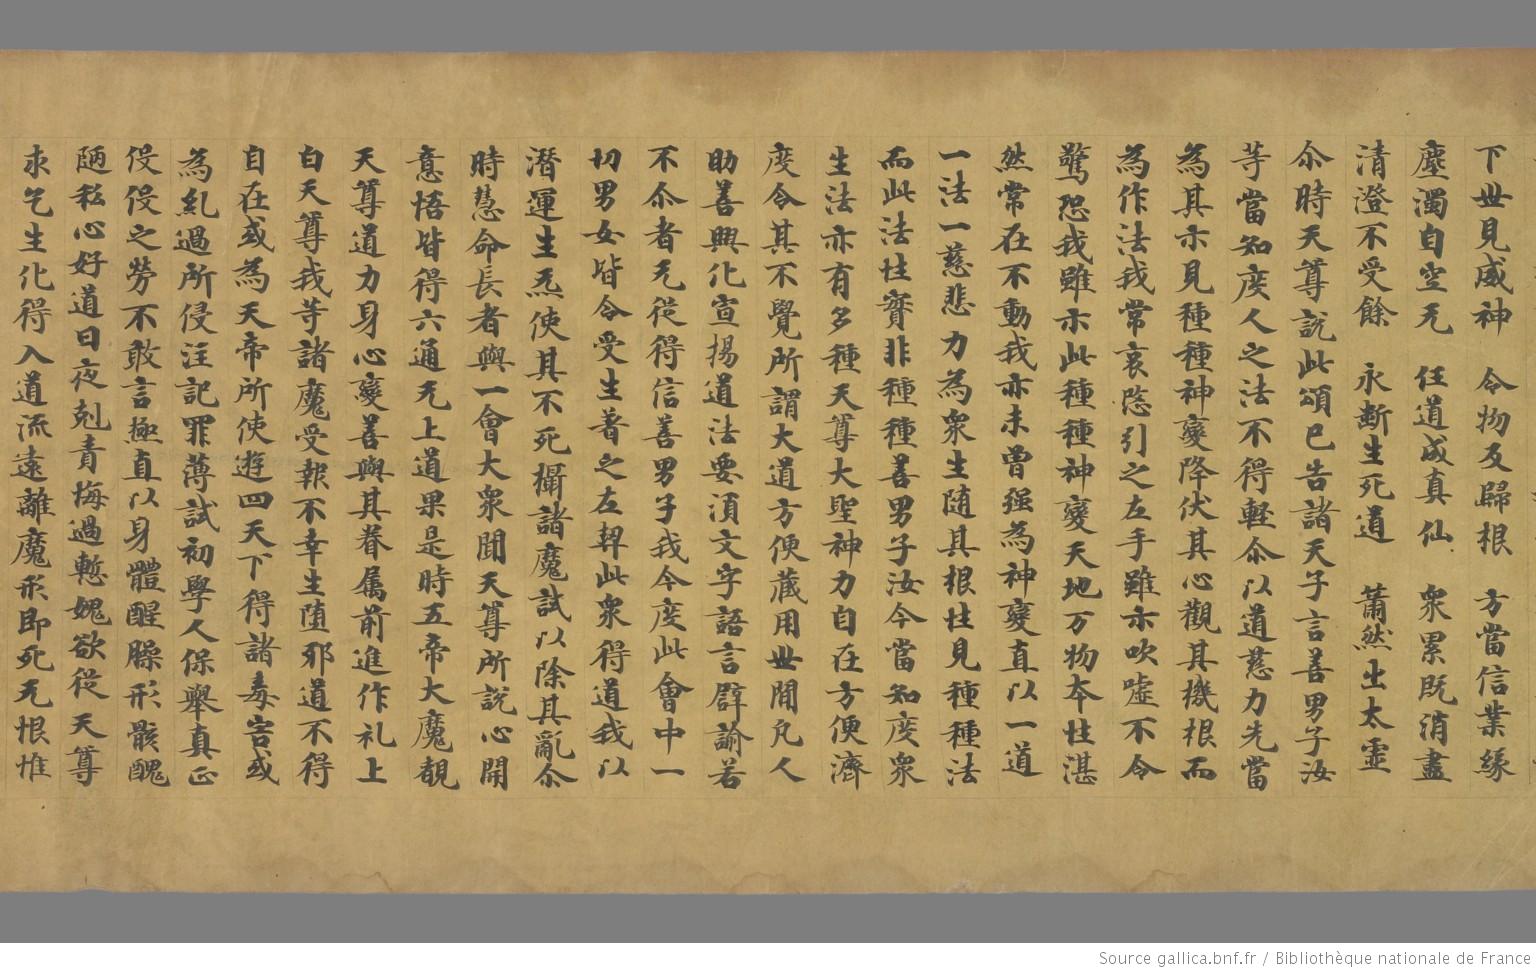 下世見威神　令物反歸根　方當信業緣
塵濁自空无　任道成真仙　衆累既消盡
清澄不受餘　永斷生死道　蕭然出太靈
尒時天尊說此頌已告諸天子言善男子汝
等當知度人之法不得輕尒以道慈力先當
為其示見種種神變降伏其心觀其機根而
為作法我常哀愍引之左手雖示吹噓不令
驚恐我雖示此種種神變天地万物本性湛
然常在不動我亦未曾强為神變直以一道
一法一慈悲力為衆生随其根性見種種法
而此法性實非種種善男子汝今當知度衆
生法亦有多種天尊大聖神力自在方便濟
度令其不覺所謂大道方便藏用世間凡人
助善興化宣揚道法要湏文字語言辟諭若
不尒者无從得信善男子我今度此會中一
切男女皆令受生著之左契此衆得道我以
潛運生炁使其不死攝諸魔試以除其亂尒
時慧命長者與一會大衆聞天尊所說心開
意悟皆得六通无上道果是時五帝大魔覩
天尊道力身心變善與其眷属前進作礼上
白天尊我等諸魔受報不幸生堕邪道不得
自在或為天帝所使遊四天下得諸毒害或
為糺過所侵注記罪薄試初學人保舉真正
伇伇之勞不敢言極直以身體醒臊形骸醜
陋私心好道日夜剋責悔過慙媿欲從天尊
求乞生化得入道流遠離魔形即死无恨惟